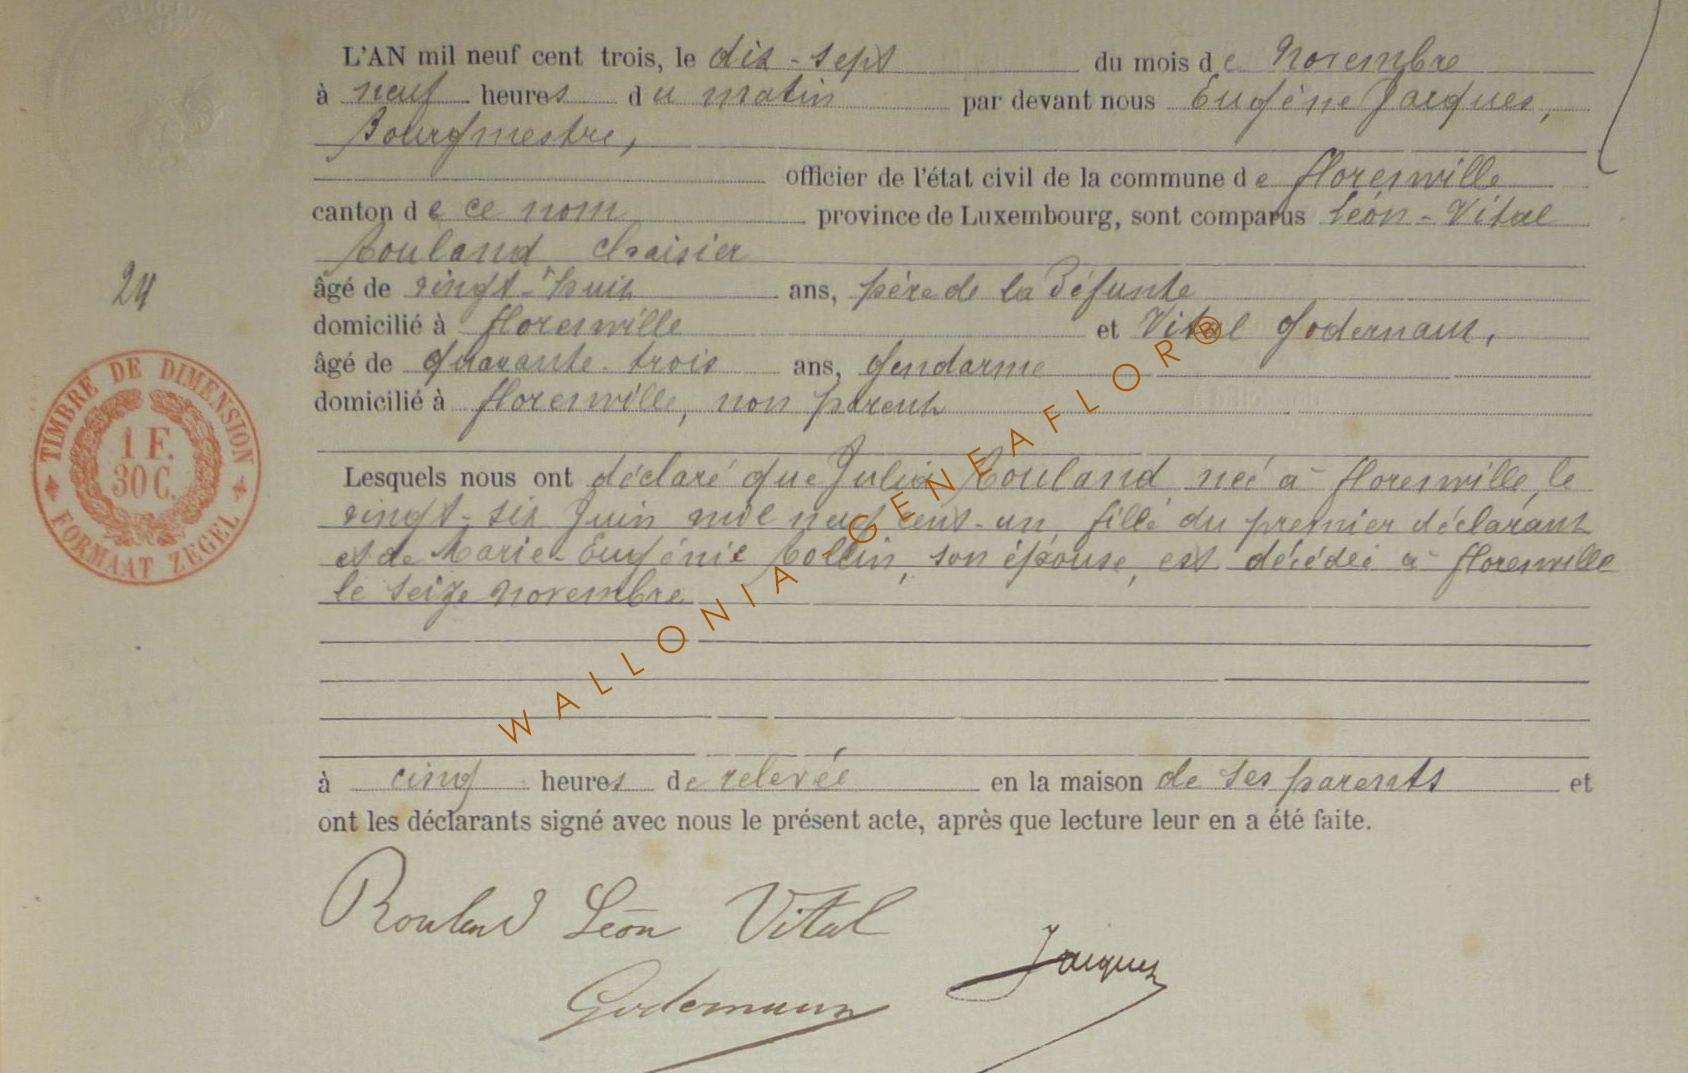 L'AN mil neuf cent trois, le dix-sept du mois de Novembre
à neuf heures du matin par devant nous Eugène Jacques,
Bourgmestre,
officier de l'état civil de la commune de florenville
canton de ce nom province de Luxembourg, sont comparus Léon-Vital
Rouland chaisier
âgé de vingt-huit ans, père de la Défunte
domicilié à florenville et Vital Godernaux,
âgé de quarante-trois ans, gendarme
domicilié à florenville, non parent
24
TIMBRE DE DIMENSION
1 F.
30 C.
FORMAAT ZEGEL
Lesquels nous ont déclaré que Julia Rouland née à florenville, le
vingt-six Juin mil neuf cent-un, fille du premier déclarant
et de Marie-Eugénie Collin, son épouse, est décédée à florenville
le seize novembre
à cinq heures de relevée en la maison de ses parents et
ont les déclarants signé avec nous le présent acte, après que lecture leur en a été faite.
Rouland Léon Vital
Jacques
WALLONIA - GENEAFLOR®